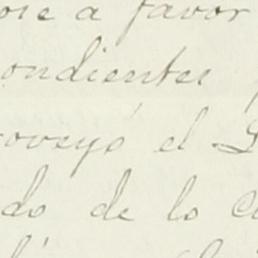 ose a favor
ondientes
roveyó el
do de lo